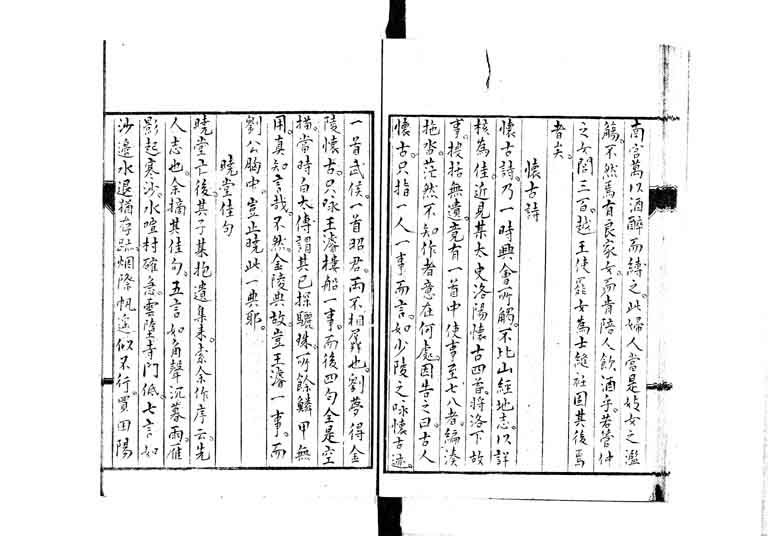 南宫萬以酒醉而縛之。此婦人當是妓女之濫
觴。不然焉有良家女而肯陪人飲酒乎。若管仲
之女閭三百。越王使罷女為士縫衽固其後焉
者矣。
懷古詩
懷古詩。乃一時興會所觸。不比山經地志。以詳
核為佳。近見某太史洛陽懷古四首。將洛下故
事。搜括無遺。竟有一首中使事至七八者。編湊
拖沓。茫然不知作者意在何處。因告之曰。古人
懷古。只指一人一事而言。如少陵之咏懷古迹。
一首武侯。一首昭君。兩不相羼也。劉夢得金
陵懷古。只咏王濬樓船一事。而後四句全是空
描。當時白太傅謂其已探驪珠。所餘鱗甲無
用。真知言哉。不然。金陵典故。豈王濬一事。而
劉公胸中。豈止曉此一典耶。
曉堂佳句
曉堂亡後。其子某抱遺集來。索余作序云。先
人志也。余摘其佳句。五言如角聲沉暮雨。雁
影起寒沙。水喧村確急。雲墜寺門低。七言如
沙邊水退猶存跡。烟際帆遠似不行。買田陽